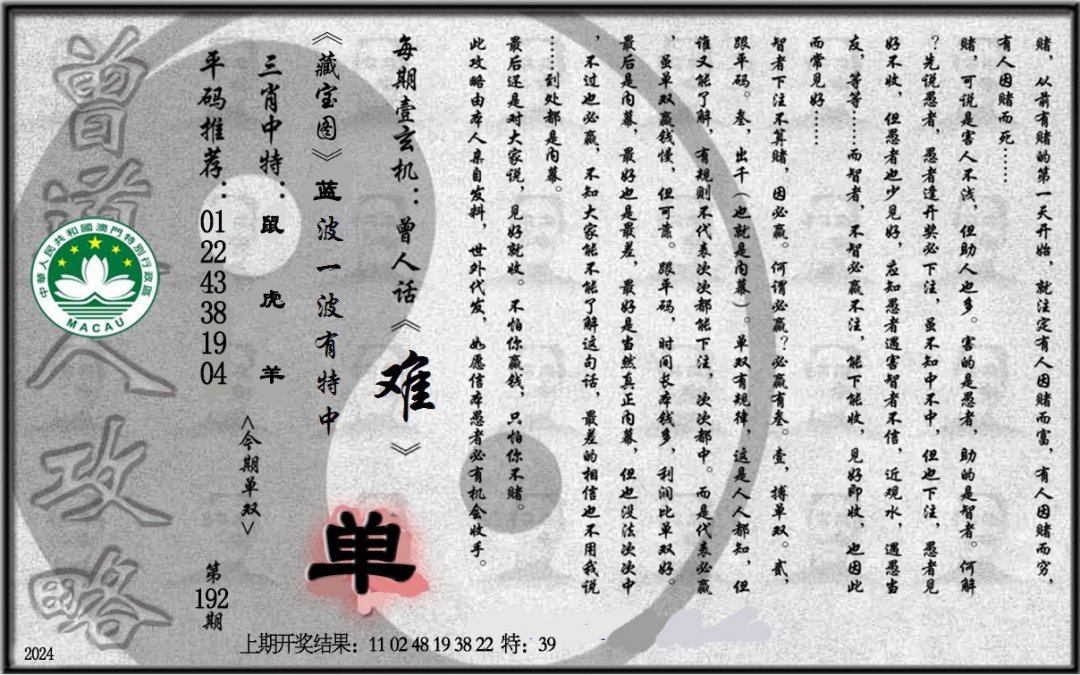 赌，从前有赌的第一天开始，就注定有人因赌而富，有人因赌而穷，
有人因赌而死……
赌，可说是害人不浅，但助人也多。害的是愚者，助的是智者。何解
？先说愚者，愚者逢开奖必下注，虽不知中不中，但也下注，愚者见
好不收，但愚者也少见好，应知愚者遇害智者不信，近观水，遇愚当
友，等等……而智者，不智必赢不注，能下能收，见好即收，也因此
而常见好……
智者下注不算赌，因必赢。何谓必赢？必赢有叁。壹，搏单双。贰，
跟平码。叁，出千（也就是内幕）。单双有规律，这是人人都知，但
谁又能了解，有规则不代表次次都能下注，次次都中。而是代表必赢
，虽单双赢钱慢，但可靠。跟平码，时间长本钱多，利润比单双好。
最后是内幕，最好也是最差，最好是当然真正内幕，但也没法次次中
，不过也必赢，不知大家能不能了解这句话，最差的相信也不用我说
……到处都是内幕。
最后还是对大家说，见好就收。不怕你赢钱，只怕你不赌。
此攻略由本人亲自发料，世外代发，如愿信本愚者必有机会收手。
每期壹玄机：曾人话《难》
《藏宝图》蓝波一波有特中
三肖中特：鼠 虎 羊
平码推荐：01 22 43 38 19 04
<今期单双>
单
第192期
曾道人攻略
中華人民共和國澳門特別行政區
MACAU
上期开奖结果：11 02 48 19 38 22 特：39
2024